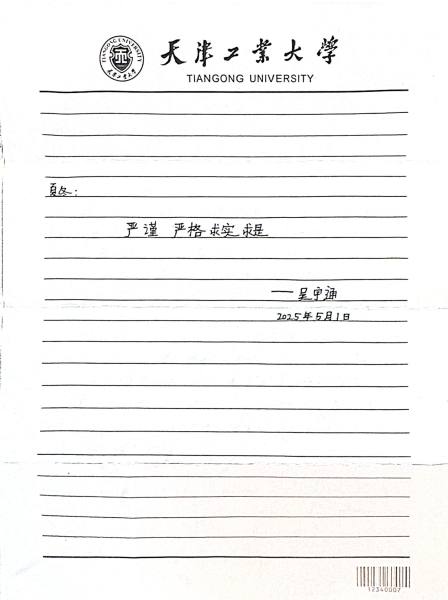 天津工业大学
TIANGONG UNIVERSITY
夏冬:
严谨 严格 求实 求是
——吴宇通
2025年5月1日
12340007